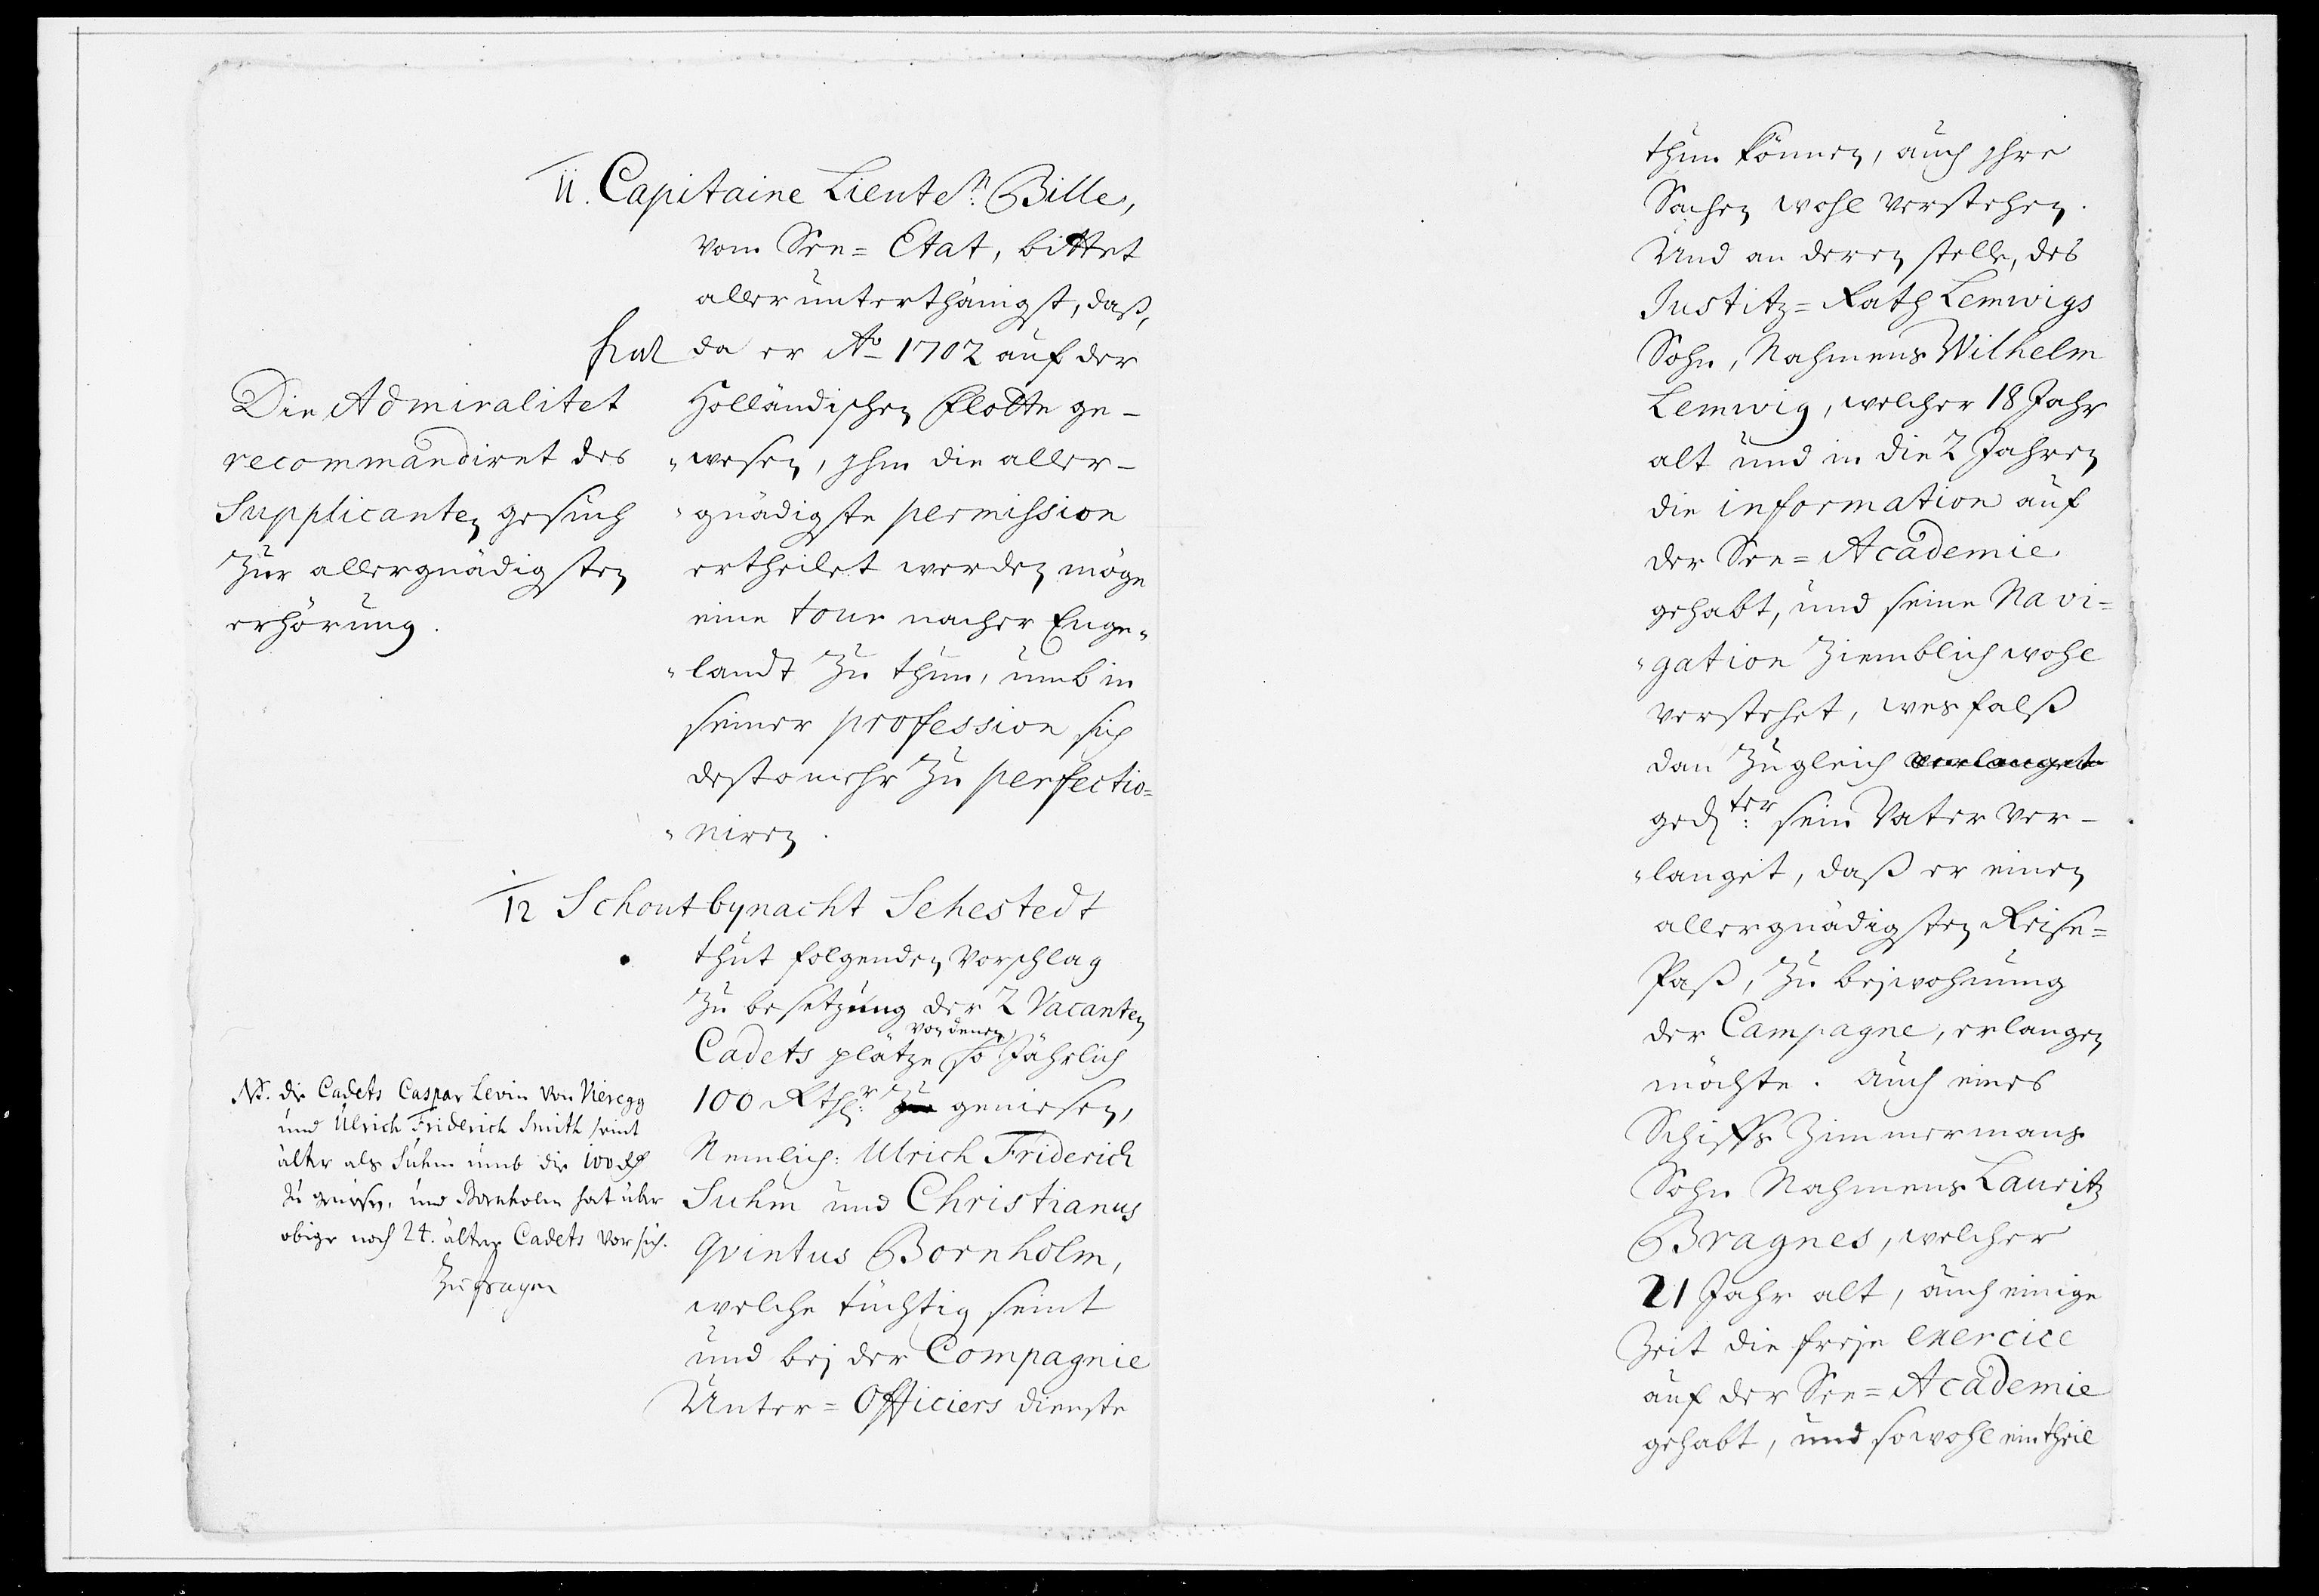 11. Capitaine Lieute.n Bille,
vom See= Etat, bittet
allerunterthänigst, daß,
da er Ao 1702 auf der
Holländischen Flotte ge-
"wesen, Ihm die aller-
"gnädigste permission
ertheilet werden möge
eine tour nacher Enge"
"landt Zu thun, umb in
seiner profession sich
destomehr Zu perfectio=
"niren.
fiat
Die Admiralitet
recommandiret des
Supplicanten gesuch
Zur allergnädigsten
erhörung.
12 Schoutbynacht Sehestedt
thut folgenden Vorschlag
Zu besetzung der 2 Vacanten
von denen
Cadets plätze so Jährlich
100 Rthlr: Zu geniesen,
Nemlich: Ulrich Friderich
Suhm und Christianus
Qvintus Bornholm,
welche tüchtig seint
und bej der Compagnie
Unter= Officiers dienste
NB. die Cadets Caspar Levin von Vieregg
und Ulrich Friderich Smith seint
älter als Suhm umb die 100 Rth
zu geniesen, und Bornholm hat über
obige noch 24. ältere Cadets vor sich.
thun können, auch Ihre
Sachen wohl verstehen.
Und an deren stelle, des
Justitz= Rath Lemwigs
Sohn, Nahmens Wilhelm
Lemwig, welcher 18 Jahr
alt und in die 2 Jahren
die information auf
der See= Academie
gehabt, und seine Navi=
"gation Ziemblich wohl
verstehet, wesfalß
dan Zugleich verlanget
gedter: sein Vater ver-
"langet, daß er einen
allergnädigsten Reise=
Paß, Zu bejwohnung
der Campagne, erlangen
möchte. Auch eines
Schiffs Zimmermans
Sohn Nahmens Lauritz
Bragnes, welcher
21 Jahr alt, auch einige
Zeit die freje exercice
auf der See= Academie
gehabt, und sowohl ein theil